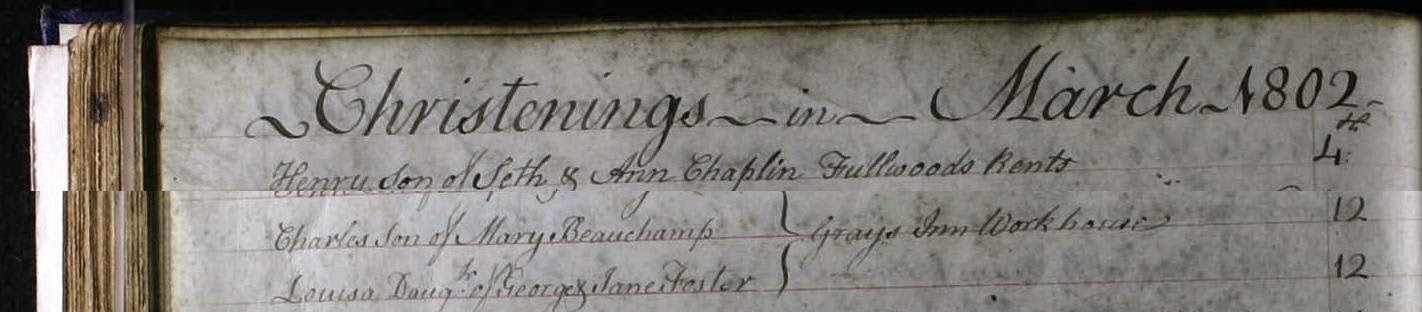 Christenings in March 1802
Henry Son of Seth & Ann Chaplin Fullwoods Rents 4th
Charles Son of Mary Beauchamp } Grays Inn Workhouse 12
Louisa Daugtr of George & Jane Foster } 12